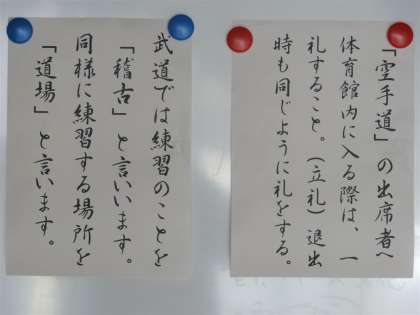 「空手道」の出席者へ
体育館内に入る際は、一
礼すること。(立礼)退出
時も同じように礼をする。
武道では練習のことを
「稽古」と言いいます。
同様に練習する場所を
「道場」と言います。